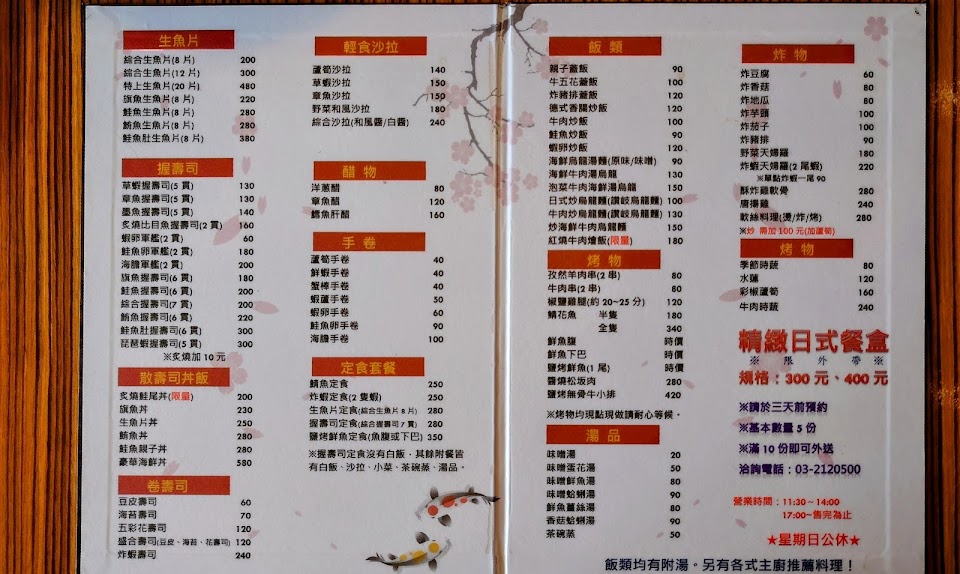 生魚片
綜合生魚片(8 片) 200
綜合生魚片(12 片) 300
特上生魚片(20 片) 480
旗魚生魚片(8 片) 220
鮭魚生魚片(8 片) 280
鮪魚生魚片(8 片) 280
鮭魚肚生魚片(8 片) 380
握壽司
草蝦握壽司(5 貫) 130
章魚握壽司(5 貫) 130
墨魚握壽司(5 貫) 140
炙燒比目魚握壽司(2 貫) 160
蝦卵軍艦(2 貫) 60
鮭魚卵軍艦(2 貫) 180
海膽軍艦(2 貫) 200
旗魚握壽司(6 貫) 180
鮭魚握壽司(6 貫) 200
綜合握壽司(7 貫) 200
鮪魚握壽司(6 貫) 220
鮭魚肚握壽司(6 貫) 300
琵琶蝦握壽司(5 貫) 300
※炙燒加 10 元
散壽司丼飯
炙燒鮭尾丼(限量) 200
旗魚丼 230
生魚片丼 250
鮪魚丼 280
鮭魚親子丼 280
豪華海鮮丼 580
卷壽司
豆皮壽司 60
海苔壽司 70
五彩花壽司 120
盛合壽司(豆皮、海苔、花壽司) 120
炸蝦壽司 240
輕食沙拉
蘆筍沙拉 140
草蝦沙拉 150
章魚沙拉 150
野菜和風沙拉 180
綜合沙拉(和風醬/白醬) 240
醋物
洋蔥醋 80
章魚醋 120
鱈魚肝醋 160
手卷
蘆筍手卷 40
鮮蝦手卷 40
蟹棒手卷 40
蝦蘆手卷 50
蝦卵手卷 60
鮭魚卵手卷 90
海膽手卷 100
定食套餐
鯖魚定食 250
炸蝦定食(2 隻蝦) 250
生魚片定食(綜合生魚片 8 片) 280
握壽司定食(綜合握壽司 7 貫) 280
鹽烤鮮魚定食(魚腹或下巴) 350
※握壽司定食沒有白飯，其餘附餐皆
有白飯、沙拉、小菜、茶碗蒸、湯品。
飯類
親子蓋飯 90
牛五花蓋飯 120
炸豬排蓋飯 120
德式香腸炒飯 120
牛肉炒飯 100
鮭魚炒飯 90
蝦卵炒飯 120
海鮮烏龍湯麵(原味/味噌) 90
海鮮牛肉湯烏龍 130
泡菜牛肉海鮮湯烏龍 150
日式炒烏龍麵(讚岐烏龍麵) 100
牛肉炒烏龍麵(讚岐烏龍麵) 130
炒海鮮牛肉烏龍麵 150
紅燒牛肉燴飯(限量) 180
烤物
孜然羊肉串(2 串) 80
牛肉串(2 串) 80
椒鹽雞腿(約 20~25 分) 120
鯖花魚 半隻 180
全隻 340
鮮魚腹 時價
鮮魚下巴 時價
鹽烤鮮魚(1 尾) 時價
醬燒松坂肉 280
鹽烤無骨牛小排 420
※烤物均現點現做請耐心等候。
湯品
味噌湯 20
味噌蛋花湯 50
味噌鮮魚湯 80
味噌蛤蜊湯 90
鮮魚薑絲湯 80
香菇蛤蜊湯 90
茶碗蒸 50
炸物
炸豆腐 60
炸香菇 80
炸地瓜 80
炸芋頭 100
炸茄子 100
炸豬排 90
野菜天婦羅 180
炸蝦天婦羅(2 尾蝦) 220
※單點炸蝦一尾 90
酥炸雞軟骨 280
唐揚雞 240
軟絲料理(燙/炸/烤) 280
※炒 需加 100 元(加蘆筍)
烤物
季節時蔬 80
水蓮 120
彩椒蘆筍 160
牛肉時蔬 240
精緻日式餐盒
※ 限 外 帶 ※
規格：300 元、400 元
※請於三天前預約
※基本數量 5 份
※滿 10 份即可外送
洽詢電話：03-2120500
營業時間：11:30~14:00
17:00~售完為止
★星期日公休★
飯類均有附湯。另有各式主廚推薦料理！